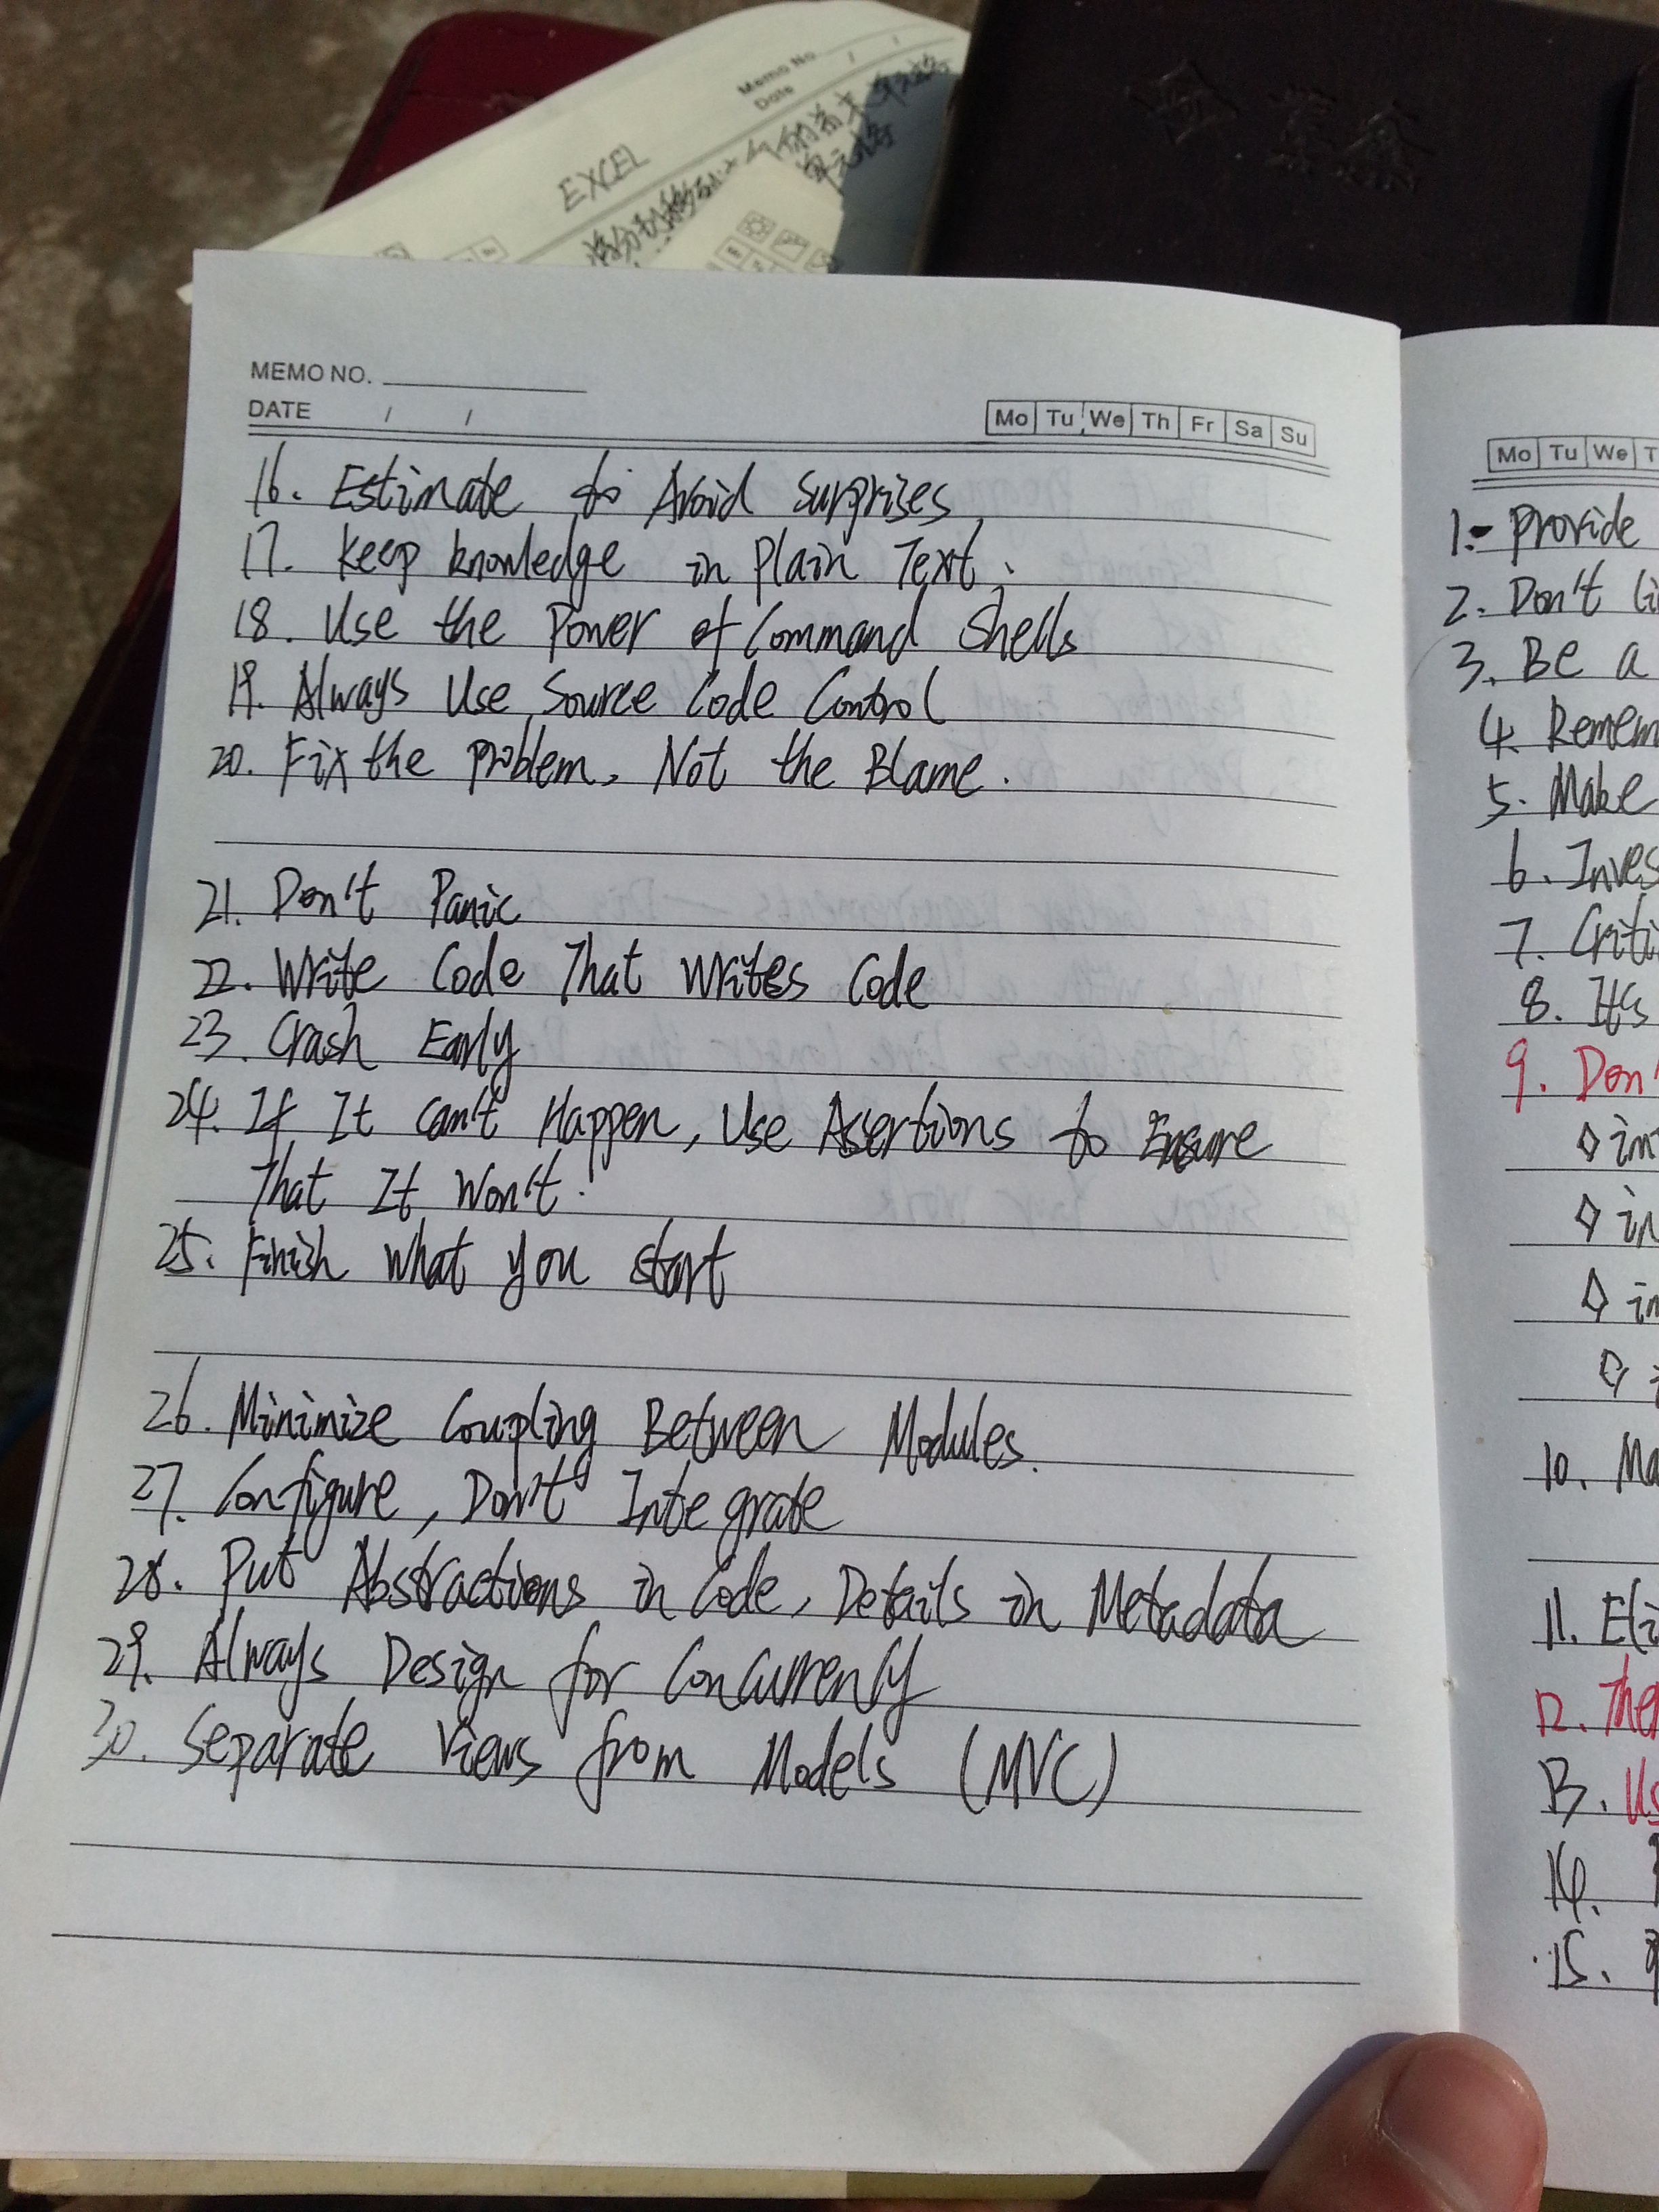 Memo No. / /
Date
EXCEL
单元格
MEMO NO.
DATE / /
Mo Tu We Th Fr Sa Su
16. Estimate to Avoid surprises
17. Keep knowledge in Plain Text.
18. Use the Power of Command Shells
19. Always Use Source Code Control
20. Fix the problem, Not the Blame.
21. Don't Panic
22. Write Code That Writes Code
23. Crash Early
24. If It Can't Happen, Use Assertions to Ensure
That It Won't.
25. Finish what you start
26. Minimize Coupling Between Modules.
27. Configure, Don't Integrate
28. Put Abstractions in Code, Details in Metadata
29. Always Design for Concurrency
30. Separate Views from Models (MVC)
Mo Tu We T
1. Provide
2. Don't Li
3. Be a
4. Remem
5. Make
6. Inves
7. Criti
8. It's
9. Don'
◊ im
◊ in
◊ im
◊
10. Ma
11. Eli
12. The
13. Us
14.
15.